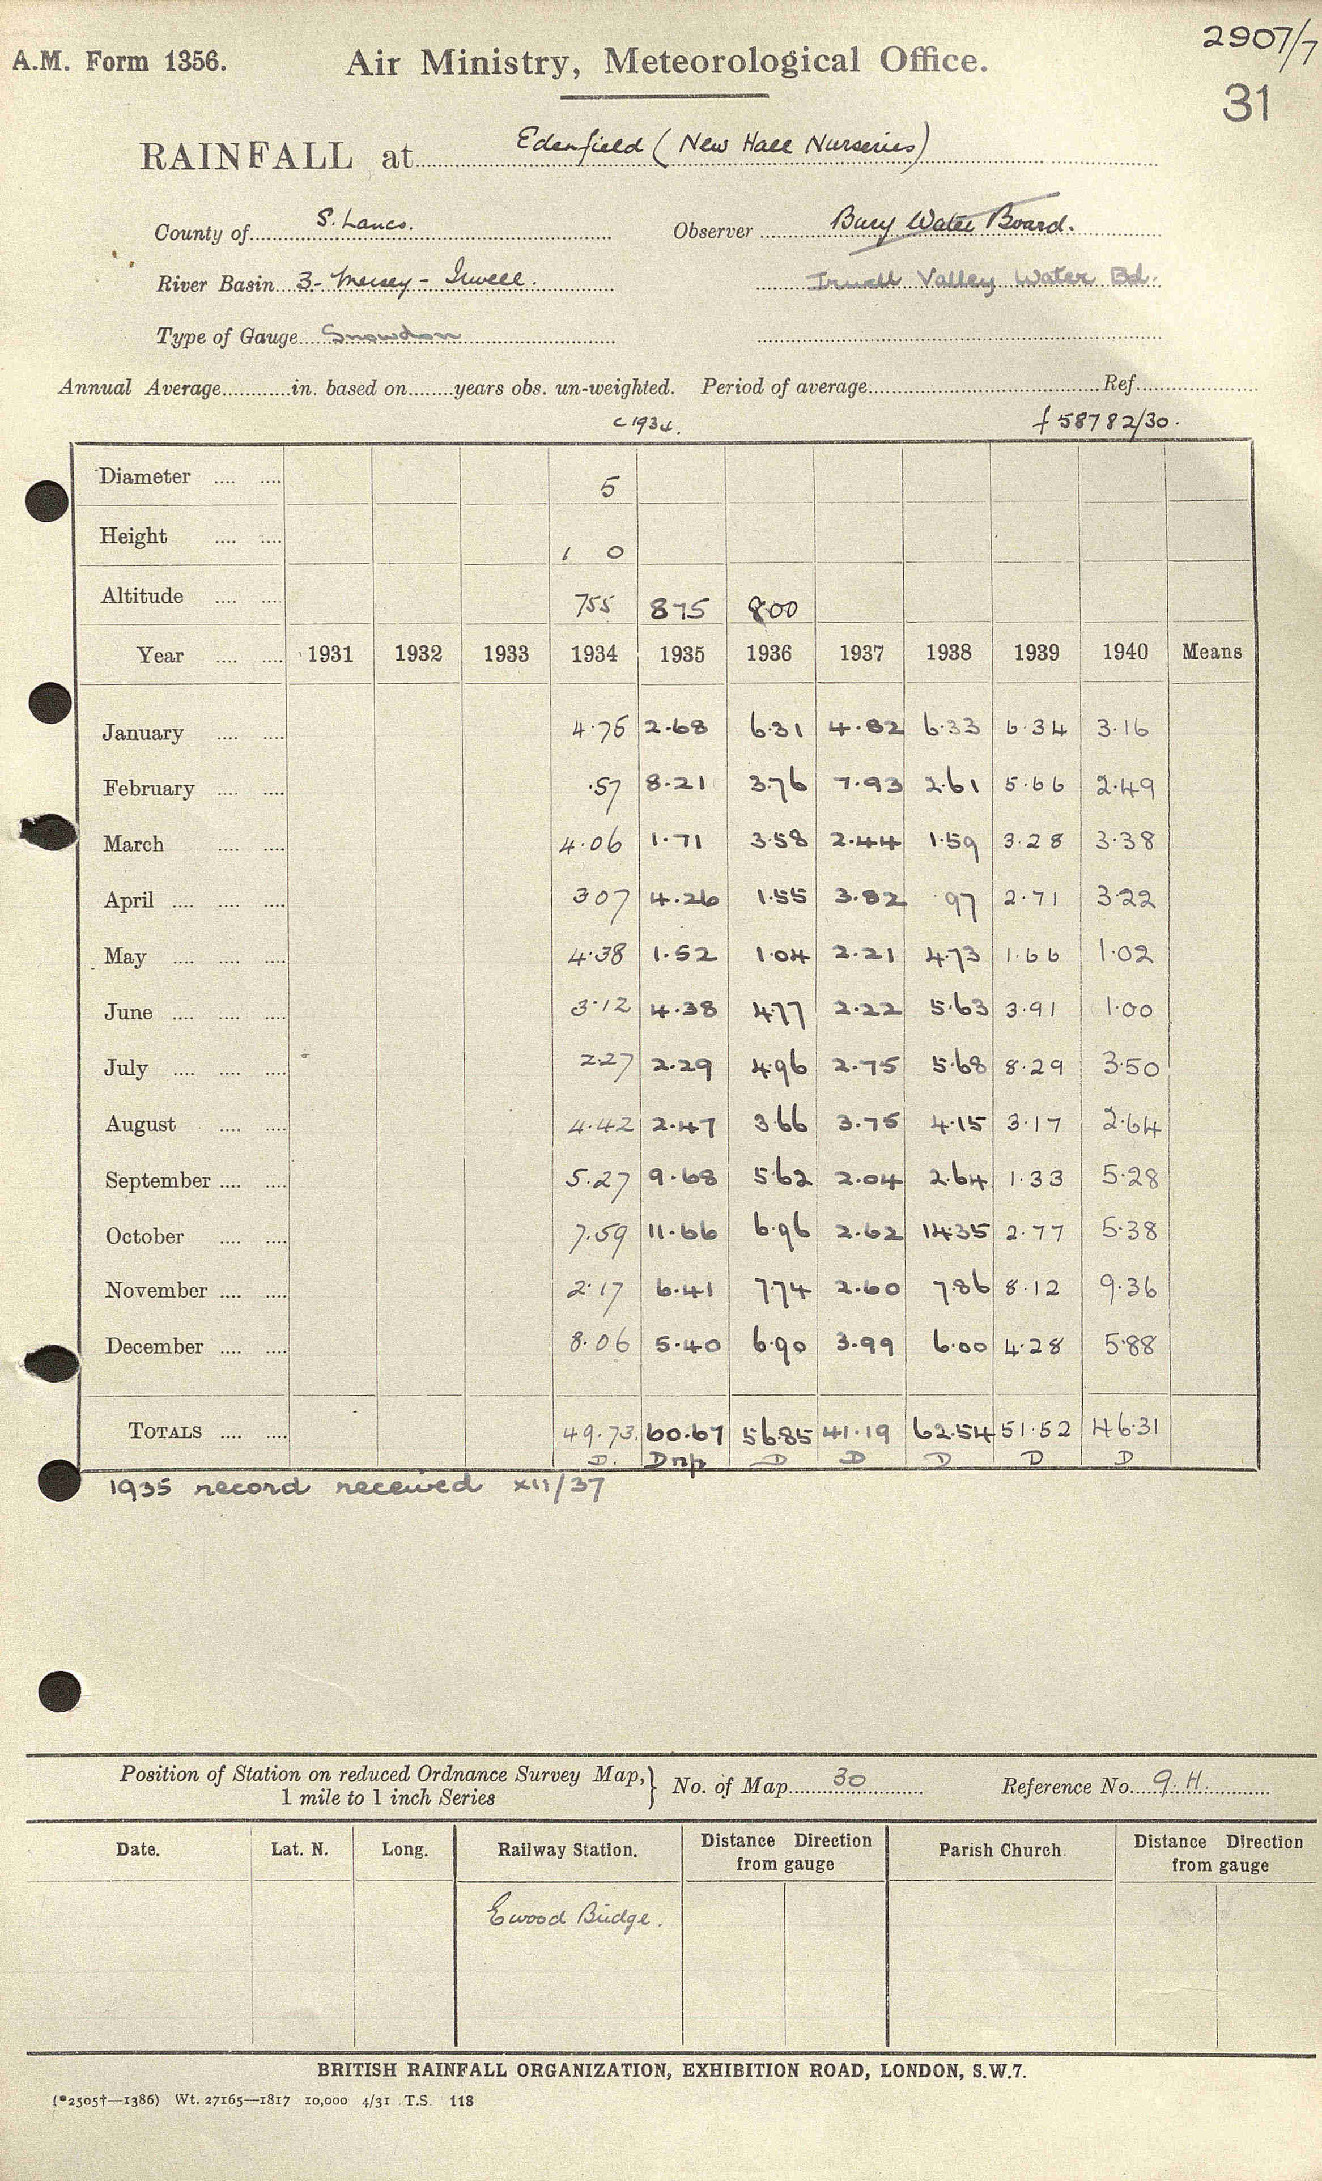 A.M. Form 1356. Air Ministry, Meteorological Office. 2907/7
31
RAINFALL at Edenfield (New Hall Nurseries)
County of S. Lancs. Observer Bury Water Board.
River Basin 3 - Mersey - Irwell. Irwell Valley Water Bd.
Type of Gauge Snowdon
Annual Average in. based on years obs. un-weighted. Period of average Ref.
c 1934. f 58782/30.
Diameter 5
Height 1 0
Altitude 755 875 800
Year 1931 1932 1933 1934 1935 1936 1937 1938 1939 1940 Means
January 4.76 2.68 6.31 4.82 6.33 6.34 3.16
February .57 8.21 3.76 7.93 2.61 5.66 2.49
March 4.06 1.71 3.58 2.44 1.59 3.28 3.38
April 3 07 4.26 1.55 3.82 .97 2.71 3.22
May 4.38 1.52 1.04 2.21 4.73 1.66 1.02
June 3.12 4.38 4.77 2.22 5.63 3.91 1.00
July 2.27 2.29 4.96 2.75 5.68 8.29 3.50
August 4.42 2.47 3.66 3.75 4.15 3.17 2.64
September 5.27 9.68 5.62 2.04 2.64 1.33 5.28
October 7.59 11.66 6.96 2.62 14.35 2.77 5.38
November 2.17 6.41 7.74 2.60 7.86 8.12 9.36
December 8.06 5.40 6.90 3.99 6.00 4.28 5.88
TOTALS 49.73 60.67 56.85 41.19 62.54 51.52 46.31
D. Dnp D D D D D
1935 record received XII/37
Position of Station on reduced Ordnance Survey Map, } No. of Map 30 Reference No. 9.H.
1 mile to 1 inch Series
Date. Lat. N. Long. Railway Station. Distance Direction from gauge Parish Church Distance Direction from gauge
Ewood Bridge.
BRITISH RAINFALL ORGANIZATION, EXHIBITION ROAD, LONDON, S.W.7.
(*2505†—1386) Wt. 27165—1817 10,000 4/31 T.S. 118